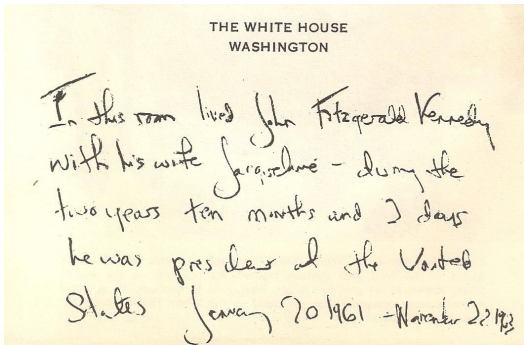 THE WHITE HOUSE
WASHINGTON
In this room lived John Fitzgerald Kennedy
with his wife Jacqueline – during the
two years ten months and 2 days
he was president of the United
States January 20 1961 – November 22 1963